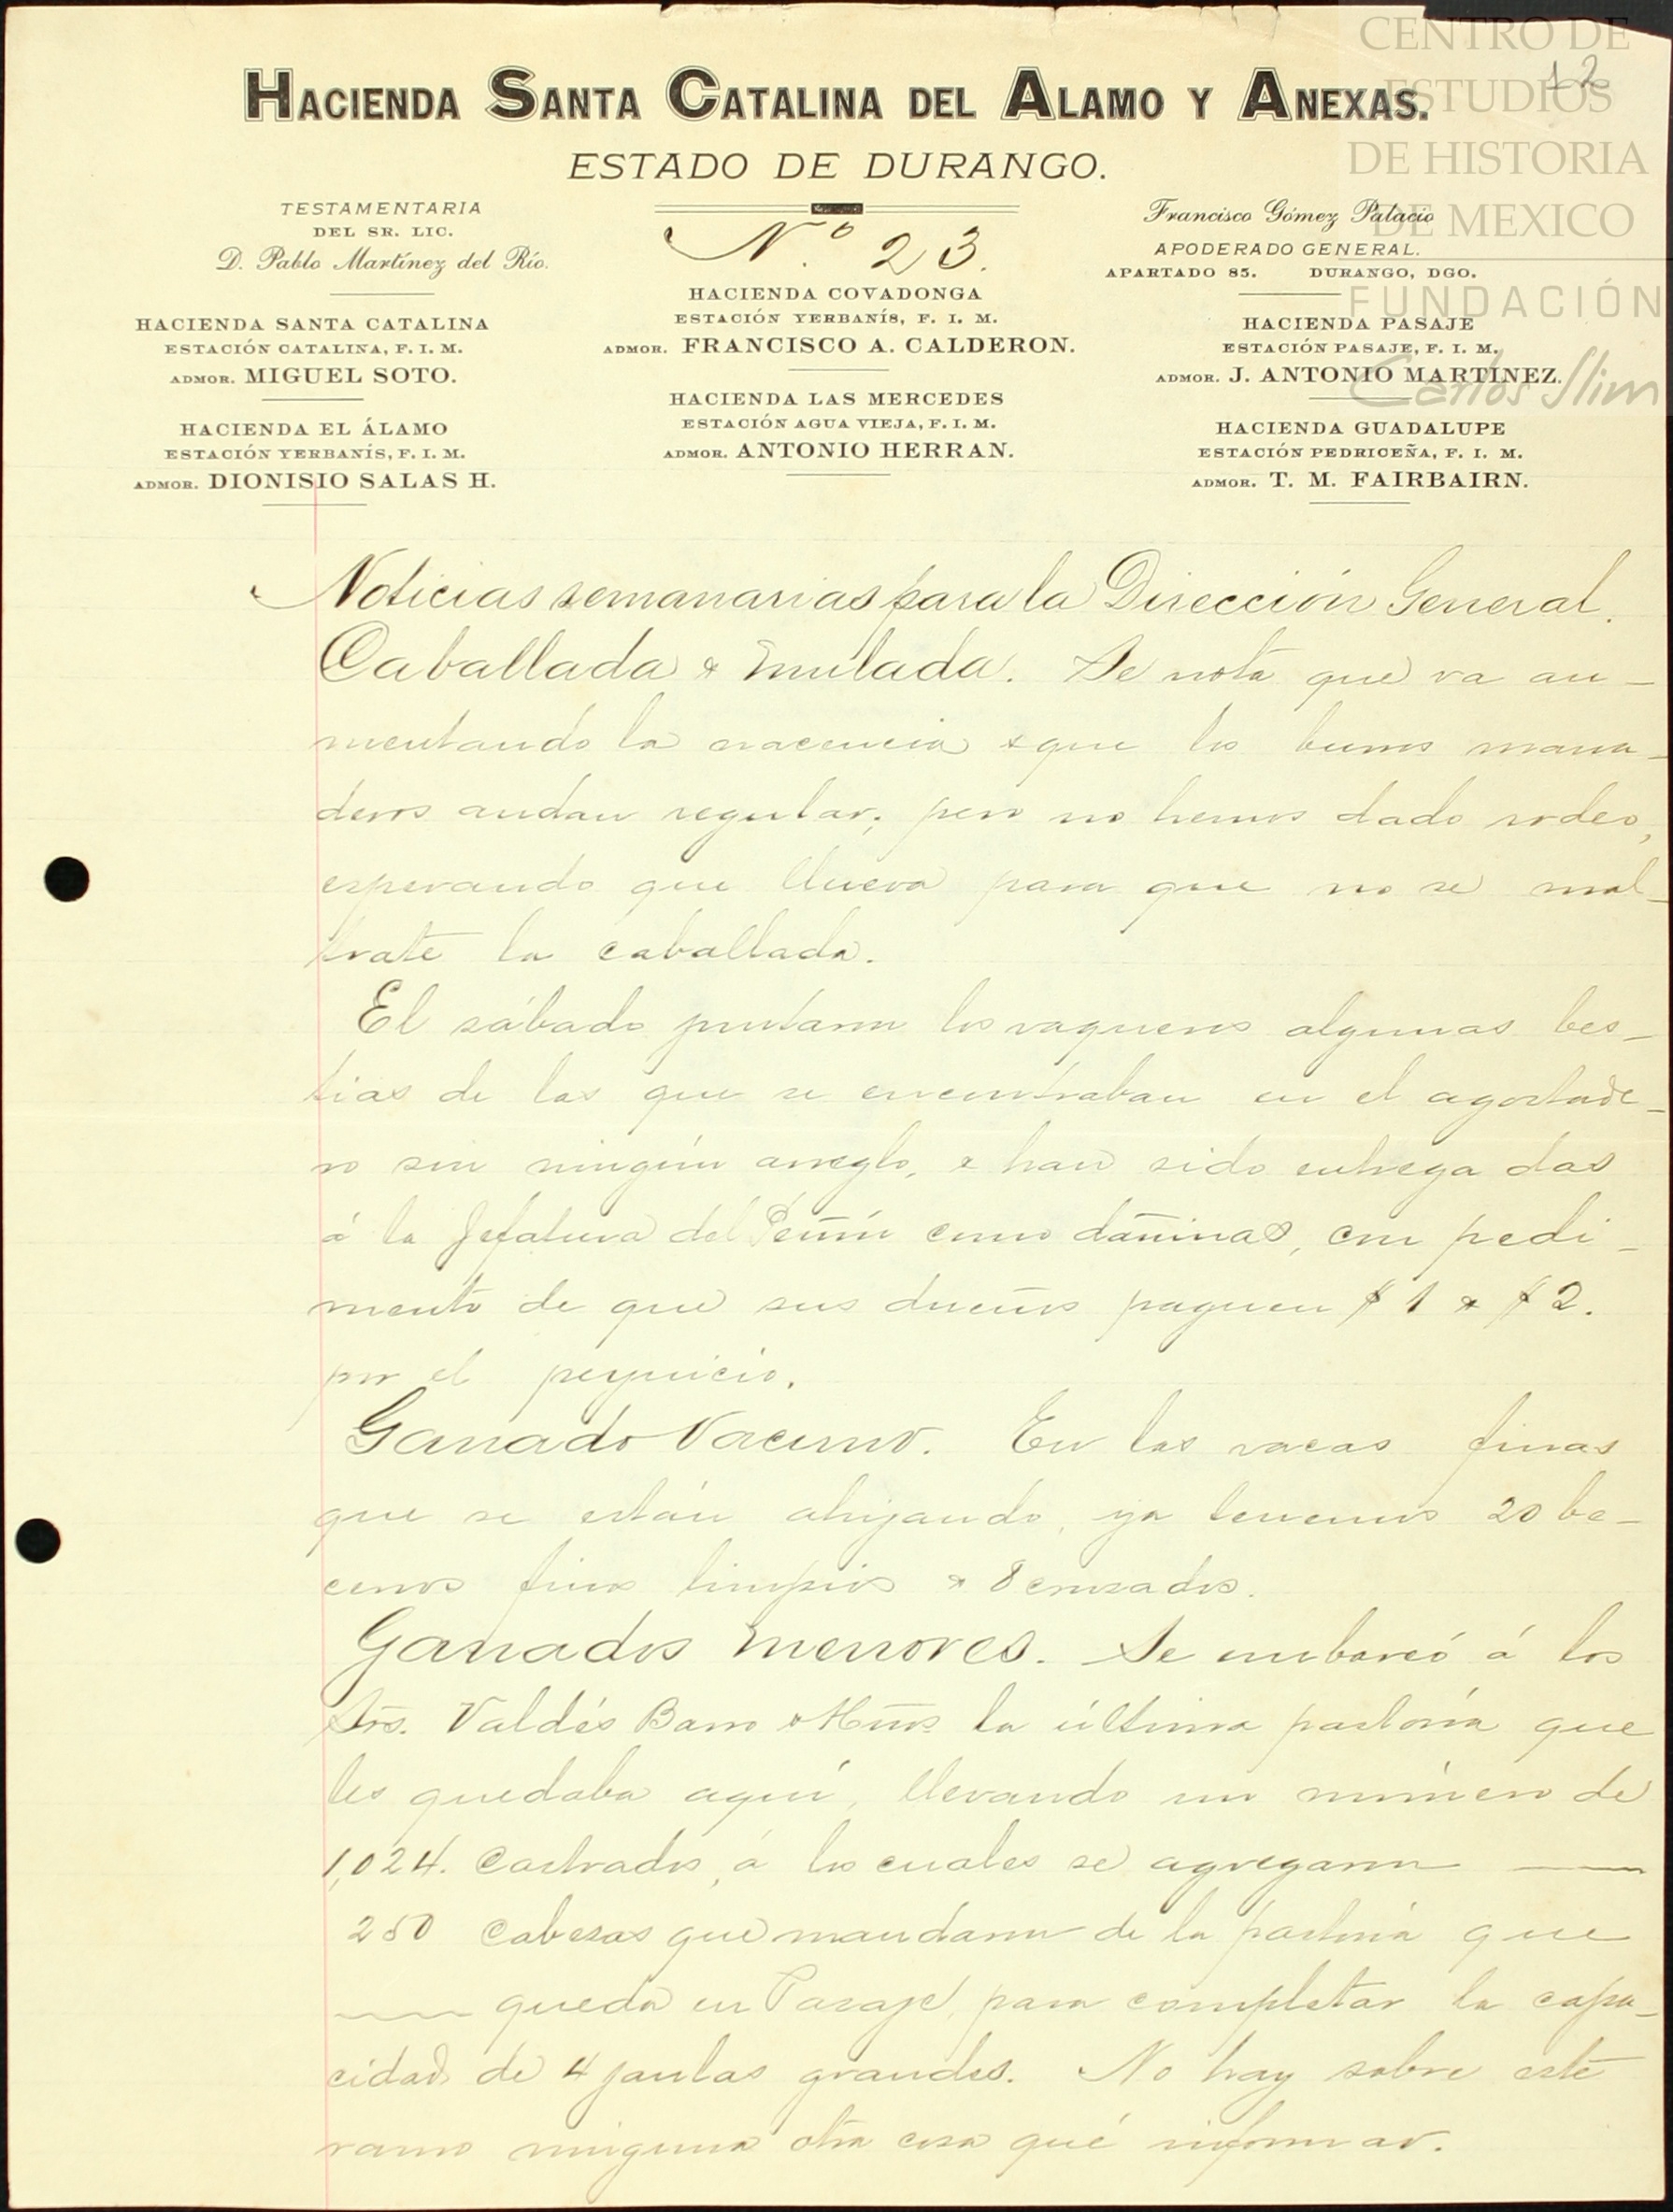 CENTRO DE
ESTUDIOS
DE HISTORIA
DE MEXICO
FUNDACIÓN
Carlos Slim
12
HACIENDA SANTA CATALINA DEL ALAMO Y ANEXAS.
ESTADO DE DURANGO.
TESTAMENTARIA
DEL SR. LIC.
D. Pablo Martínez del Río.
HACIENDA SANTA CATALINA
ESTACIÓN CATALINA, F. I. M.
ADMOR. MIGUEL SOTO.
HACIENDA EL ÁLAMO
ESTACIÓN YERBANÍS, F. I. M.
ADMOR. DIONISIO SALAS H.
Nº 23.
HACIENDA COVADONGA
ESTACIÓN YERBANÍS, F. I. M.
ADMOR. FRANCISCO A. CALDERON.
HACIENDA LAS MERCEDES
ESTACIÓN AGUA VIEJA, F. I. M.
ADMOR. ANTONIO HERRAN.
Francisco Gómez Palacio
APODERADO GENERAL.
APARTADO 85. DURANGO, DGO.
HACIENDA PASAJE
ESTACIÓN PASAJE, F. I. M.
ADMOR. J. ANTONIO MARTÍNEZ.
HACIENDA GUADALUPE
ESTACIÓN PEDRICEÑA, F. I. M.
ADMOR. T. M. FAIRBAIRN.
Noticias semanarias para la Dirección General.
Caballada & mulada. Se nota que va au-
mentando la nacencia & que los burros mana-
deros andan regular; pero no hemos dado rodeo,
esperando que llueva para que no se mal-
trate la caballada.
El sábado juntaron los vaqueros algunas bes-
tias de las que se encontraban en el agostade-
ro sin ningún arreglo, & han sido entrega das
á la Jefatura del Peñón como dañinas, con pedi-
mento de que sus dueños paguen $ 1 & $ 2.
por el perjuicio.
Ganado Vacuno. En las vacas finas
que se están ahijando, ya tenemos 20 be-
cerros finos limpios & 8 cruzados.
Ganados menores. Se embarcó á los
Srs. Valdés Barro & Hños la última pastoría que
les quedaba aquí, llevando un número de
1,024. Castrados, á los cuales se agregaron
250 Cabezas que mandaron de la pastoría que
queda en Pasaje, para completar la capa-
cidad de 4 jaulas grandes. No hay sobre este
ramo ninguna otra cosa qué informar.